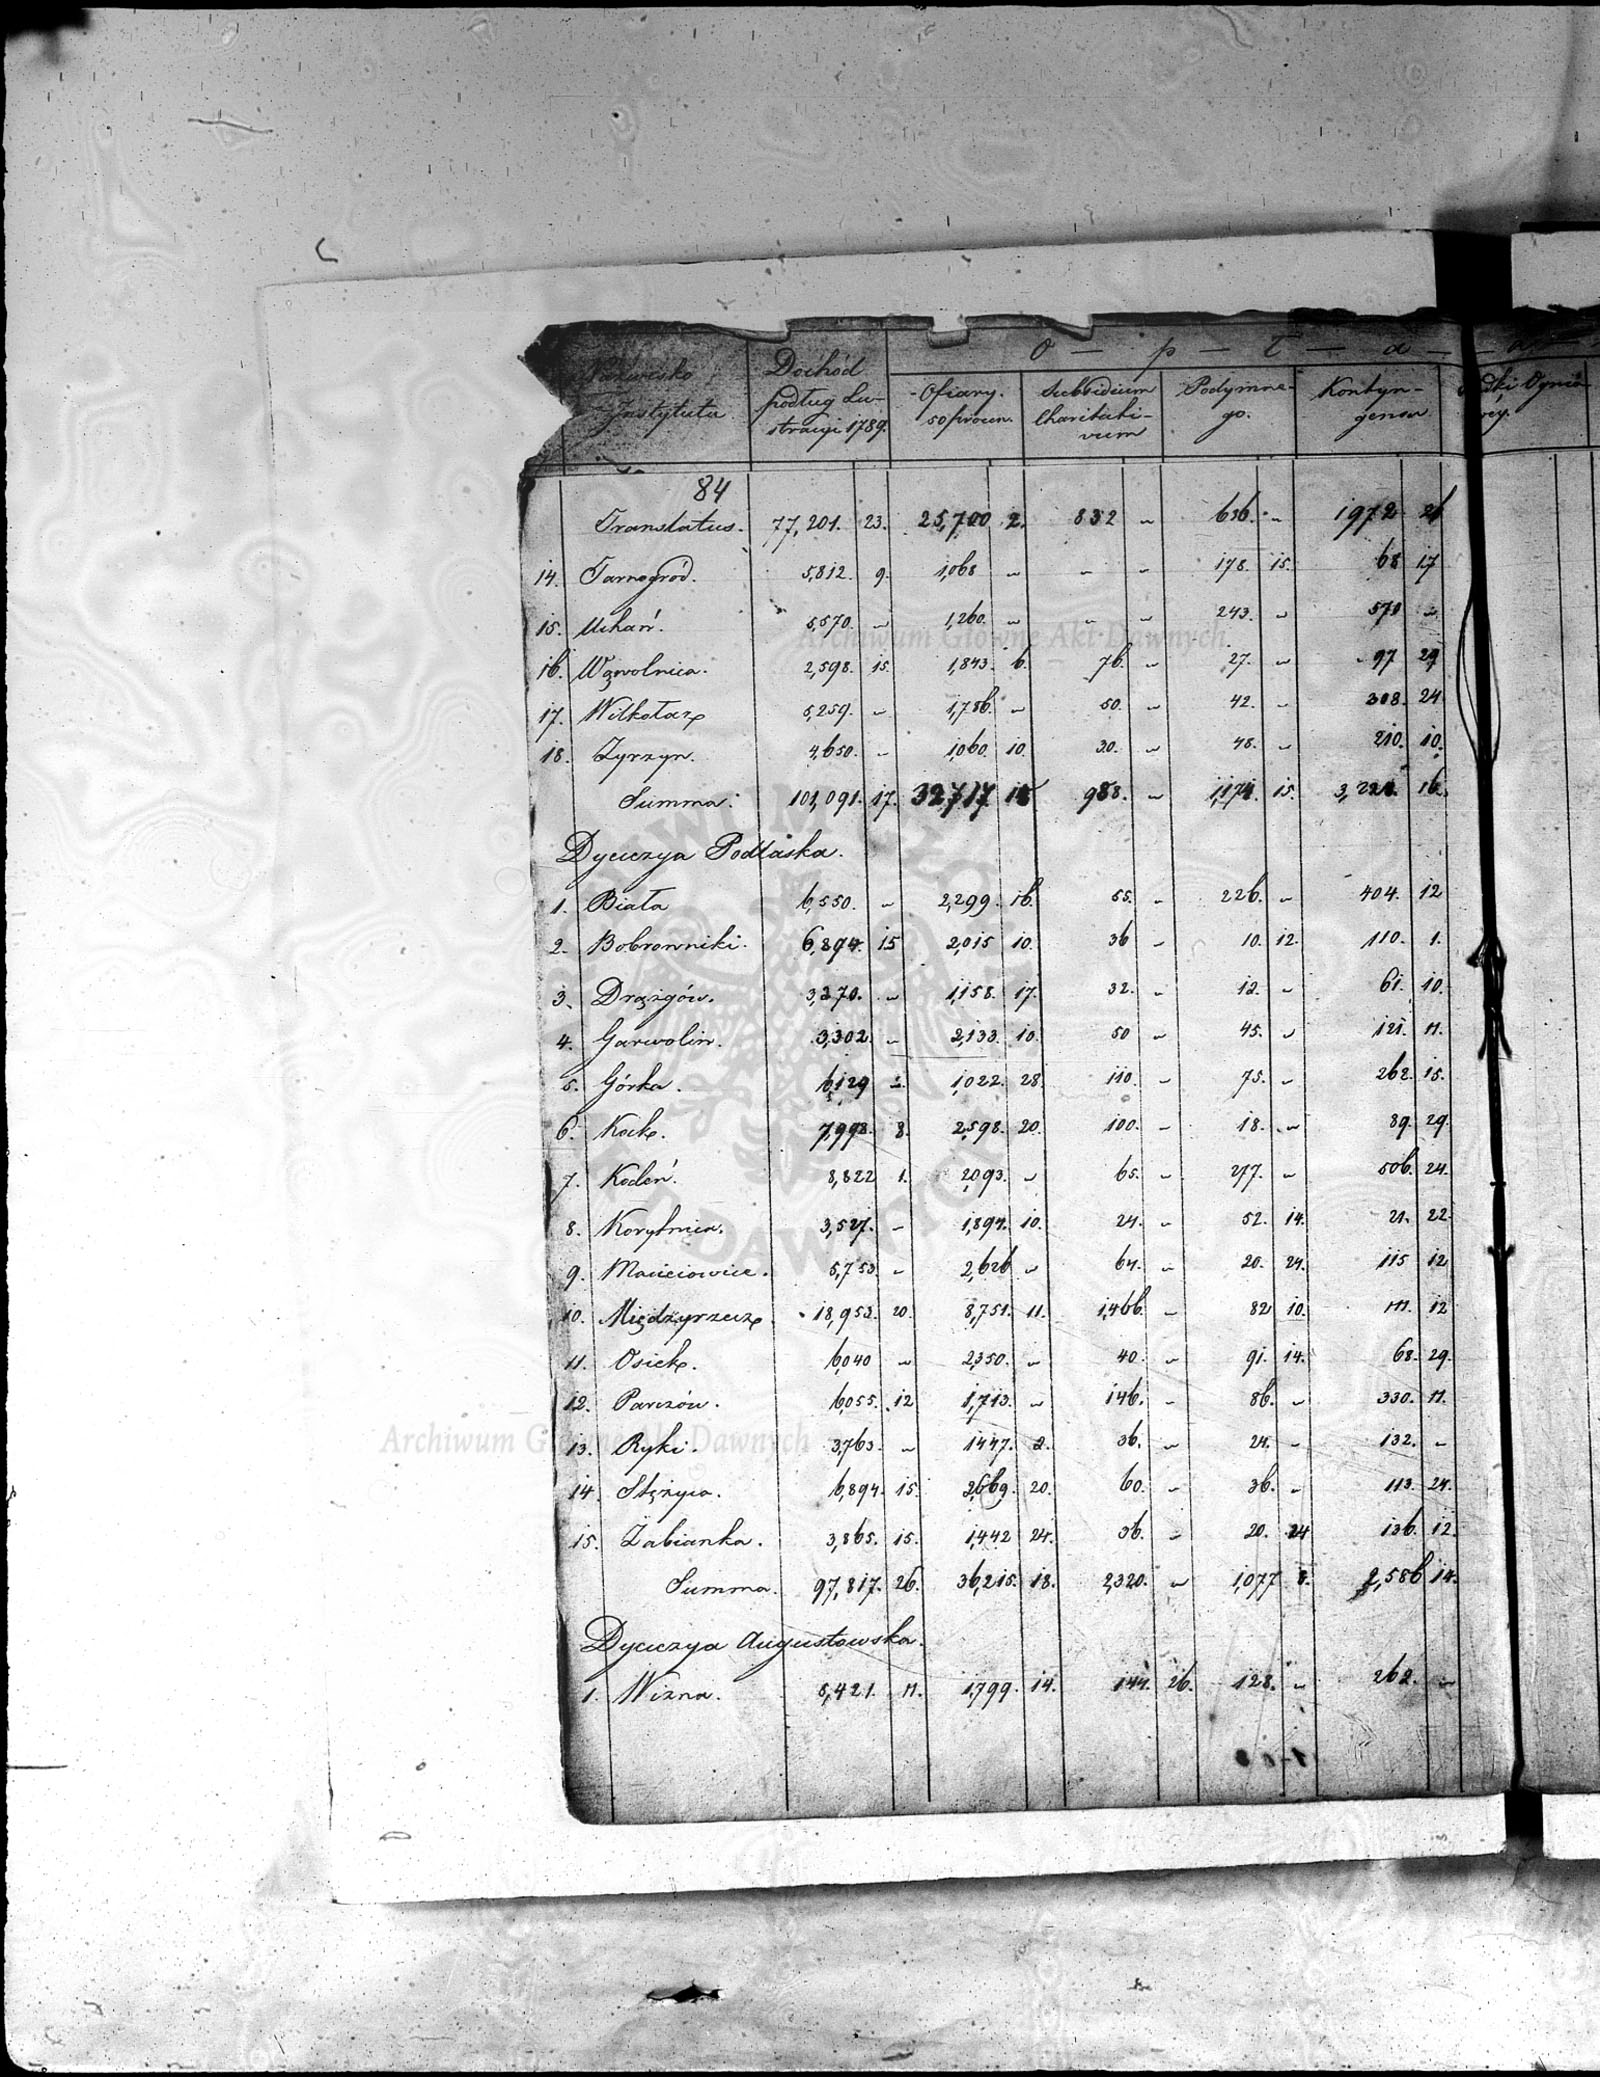 O — p — ł — a — 
Nazwisko Instytutu
Dochód podług Lustracyi 1789.
Ofiary. 50 procen.
Subsidium Charitativum
Podymnego.
Kontyngensu
Ognio
84
Translatus. 77,201. 23. 25,700 2. 832 " 636. "  1972 21
14. Tarnogród. 5,812. 9. 1,068 " " " 178. 15. 68 17
15. Uchań. 5,570. " 1,260. " " " 243. " 570 "
16. Wąwolnica. 2,598. 15. 1,843. 6. 76. " 27. " 97 29
17. Wilkołaz 5,259. " 1,786. " 50. " 42. " 308. 24
18. Zyrzyn. 4,650. " 1,060. 10 30. " 48. " 210. 10.
Summa. 101,091. 17. 32,717 988. " 1,174. 15. 16.
Dyecezya Podlaska.
1. Biała 6,550. " 2,299. 16. 55. " 226. " 404. 12
2. Bobrowniki. 6,894. 15 2,015 10. 36 " 10. 12. 110. 1.
3. Drążgów. 3,270. " 1,158. 17. 32. " 12. " 61. 10.
4. Garwolin. 3,302. " 2,133. 10. 50 " 45. " 121. 11.
5. Górka. 6,129 1,022. 28. 110. " 75. " 262. 15.
6. Kock. 7,998. 8. 2,598. 20. 100. " 18. " 89. 29.
7. Kodeń. 8,822 1. 2,093. " 65. " 277. " 506. 24.
8. Korytnica. 3,527. " 1,894. 10. 24. " 52. 14. 21. 22.
9. Macieiowice. 5,753. " 2,626 " 64. " 20. 24. 115 12
10. Międzyrzecz 18,952. 20. 8,751. 11. 1,466. " 82 10. 111. 12
11. Osiek. 6,040 " 2,350. " 40. " 91. 14. 68. 29.
12. Parczów. 6,055. 12 1,713. " 146. " 86. " 330. 11.
13. Ryki. 3,763. " 1,447. 2. 36. " 24. " 132. "
14. Stężyca. 6,894. 15. 2,669. 20. 60. " 36. " 113. 24.
15. Żabianka. 3,865. 15. 1,442 24. 36. " 20. 24 136. 12.
Summa. 97,817. 26. 36,215. 18. 2,320. " 1,077 8. 2,586 14.
Dyecezya Augustowska.
1. Wizna. 5,421. 11. 1,799. 14. 144. 26. 128. " 262. "
Archiwum Główne Akt Dawnych
Archiwum Główne Akt Dawnych